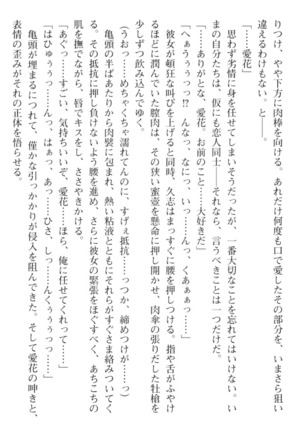 りつけ、やや下方に肉棒を向ける。あれだけ何度も口で愛したその部分を、いまさら狙い
違えるわけもない。と――。
「……愛花」
思わず劣情に身を任せてしまいそうだったが、一番大切なことを忘れてはいけない。い
まの自分たちは、仮にも恋人同士――それなら、言うべきことは一つだけだ。
「……ありがとな、愛花。お前のこと……大好きだ」
「へぁぅぅぅっ⁉ んっ、なっ、なにっ、いっ……んっ、くあぁぁっ……」
彼女が頓狂な叫びを上げると同時、久志はまっすぐに腰を押しつける。指や舌がふやけ
るほどに潤んでいた膣肉は、その狭い蜜壺を懸命に押し開かせ、肉傘の張りだした牡槍を
少しずつ飲み込んでゆく。
（うおっ……めちゃくちゃ濡れてんのに、すげぇ抵抗……っつか、締めつけが……っ）
亀頭の半ばあたりから肉襞に包まれ、熱い粘液とともにそれらがすぐさま絡みついてく
る。その抵抗に押し負けないよう腰を進め、さらに彼女の緊張をほぐすべく、あちこちの
肌を撫でながら、唇でキスをし、ささやきかける。
「あぐっ……すごい、気持ちいいぞ、愛花……ほら、俺に任せてくれって……」
「はひゅぅぅっ……んっ、はぁっ、あっ……ひさ、しっ……んくぅぅぅっっ……」
亀頭が埋まるにつれて、僅かな引っかかりが侵入を阻んできた。そして愛花の呻きと、
表情の歪みがそれの正体を悟らせる。